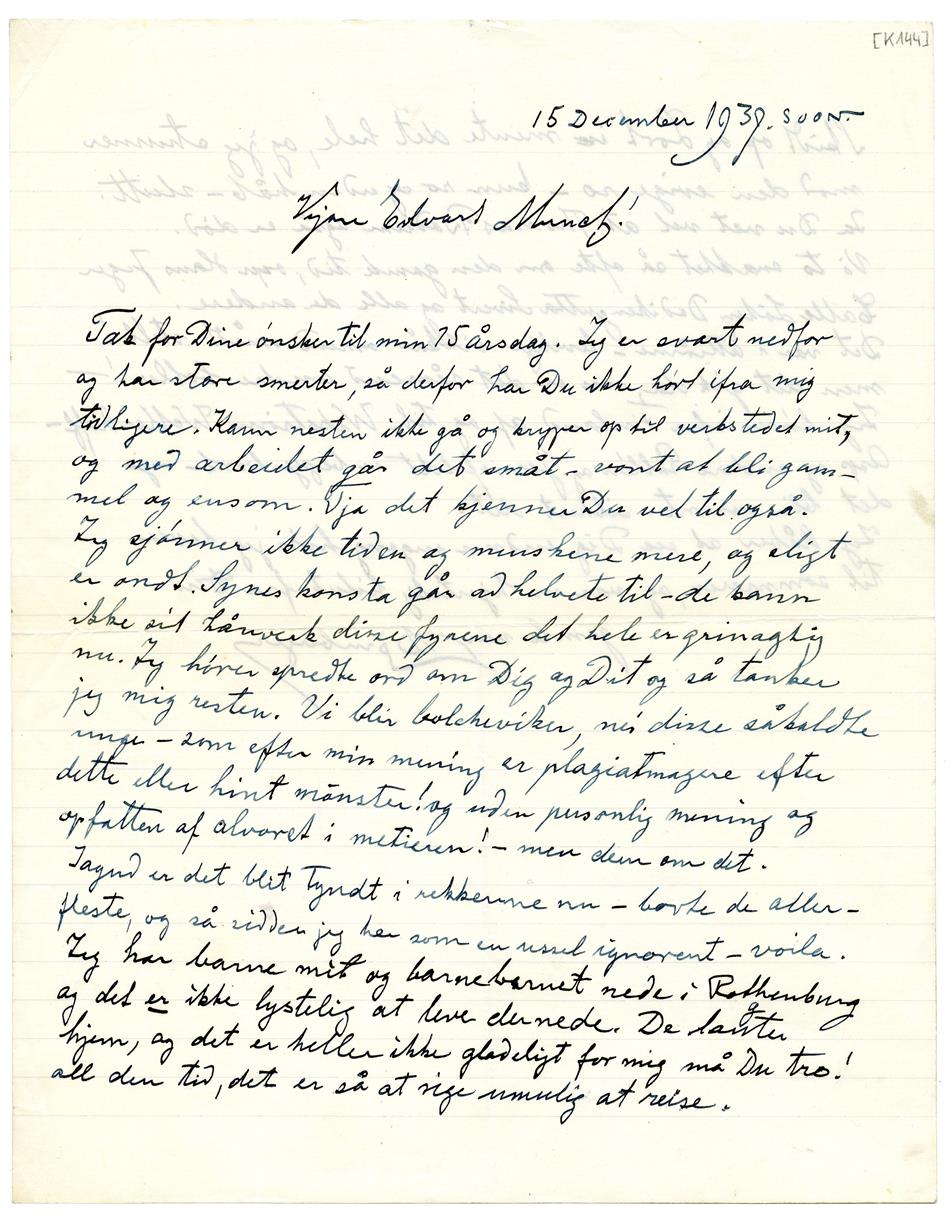 [K144]
15 December 1939. SOON.
Kjære Edvart Munch!
Tak for Dine ønsker til min 75 årsdag. Jeg er svært nedfor
og har store smerter, så derfor har Du ikke hørt ifra mig
tidligere. Kann nesten ikke gå og kryper op til verkstedet mit,
og med arbeidet går det småt – vont at bli gam-
mel og ensom. Tja det kjenner Du vel til også.
Jeg sjønner ikke tiden og menskene mere, og sligt
er ondt. Synes konsta går ad helvete til – de kann
ikke sit hånverk disse fyrene det hele er grinagtig
nu. Jeg hører spredte ord om Dig og Dit og så tænker
jeg mig resten. Vi blir bolcheviker, nei disse såkaldte
unge – som efter min mening er plagiatmagere efter
dette eller hint mønster! og uden personlig mening og
opfatten af alvoret i metieren! – men dem om det.
Jagud er det blit tyndt i rekkerne nu – borte de aller-
fleste, og så sidder jeg her som en ussel ignorent – voila.
Jeg har barne mit og barnebarnet nede i Rothenburg
og det er ikke lystelig at leve dernede. De længter
hjem, og det er heller ikke gladeligt for mig må Du tro!
all den tid, det er så at sige umulig at reise.